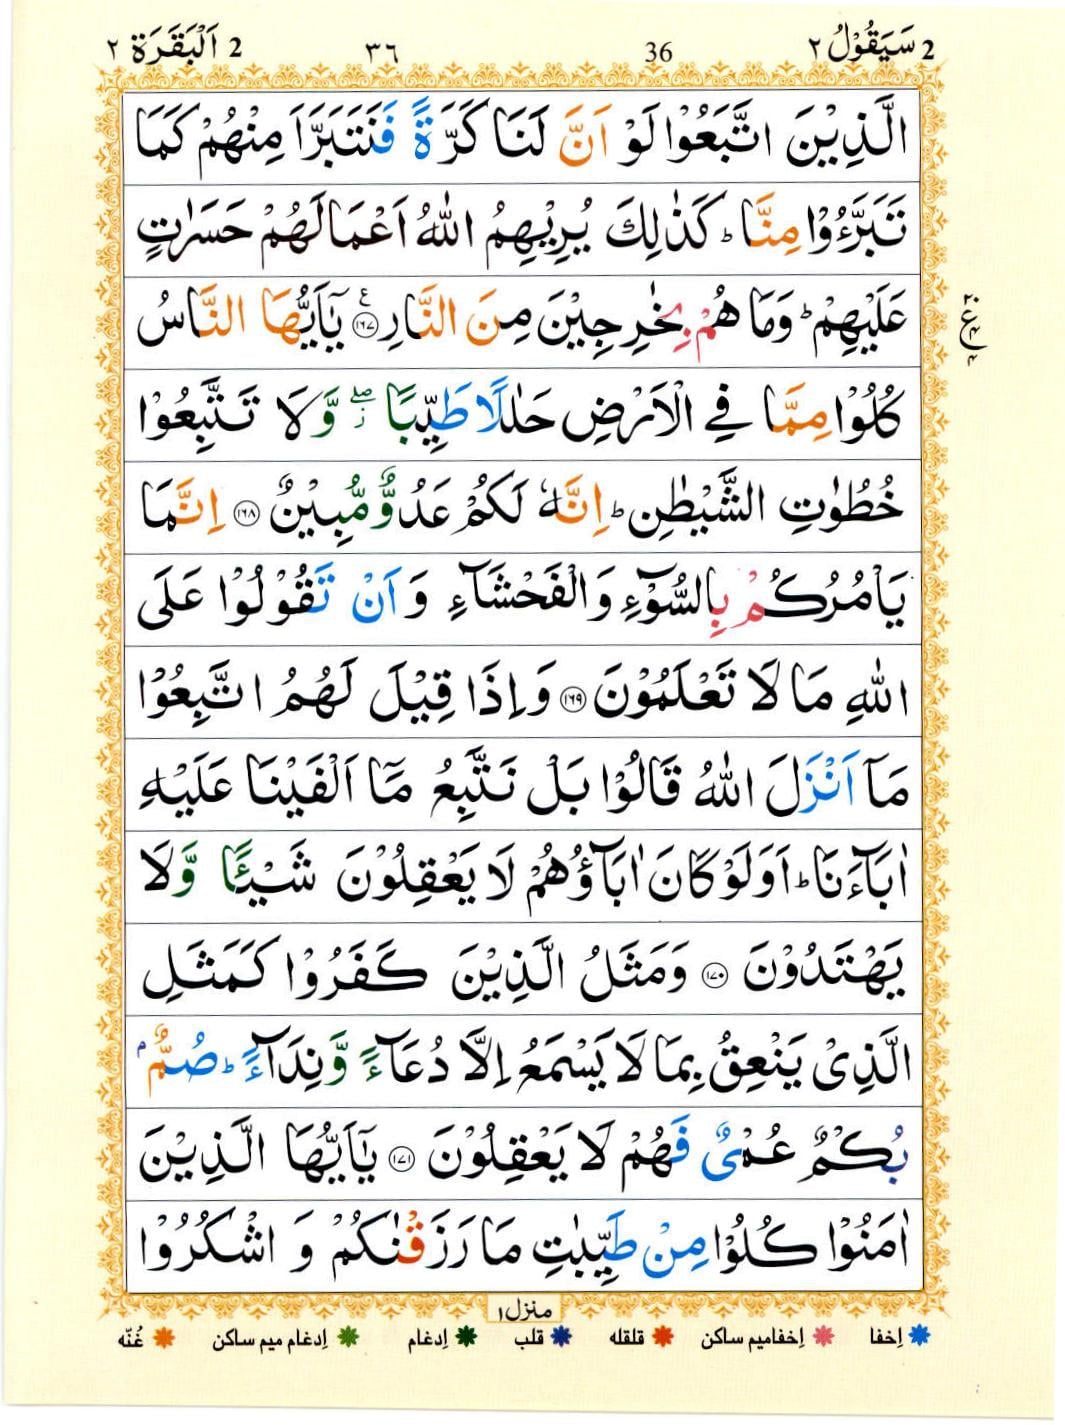 2 سَيَقُوْلُ ٢ 36 ٣٦ 2 اَلْبَقَرَة ٢
الَّذِيْنَ اتَّبَعُوْا لَوْ اَنَّ لَنَا كَرَّةً فَنَتَبَرَّاَ مِنْهُمْ كَمَا
تَبَرَّءُوْا مِنَّا ؕ كَذٰلِكَ يُرِيْهِمُ اللّٰهُ اَعْمَالَهُمْ حَسَرٰتٍ
عَلَيْهِمْ ؕ وَمَا هُمْ بِخٰرِجِيْنَ مِنَ النَّارِ ۧ ﴿١٦٧﴾ يٰۤاَيُّهَا النَّاسُ
كُلُوْا مِمَّا فِي الْاَرْضِ حَلٰلًا طَيِّبًا ۖز وَّلَا تَتَّبِعُوْا
خُطُوٰتِ الشَّيْطٰنِ ؕ اِنَّهٗ لَكُمْ عَدُوٌّ مُّبِيْنٌ ﴿١٦٨﴾ اِنَّمَا
يَاْمُرُكُمْ بِالسُّوْٓءِ وَالْفَحْشَآءِ وَاَنْ تَقُوْلُوْا عَلَى
اللّٰهِ مَا لَا تَعْلَمُوْنَ ﴿١٦٩﴾ وَاِذَا قِيْلَ لَهُمُ اتَّبِعُوْا
مَآ اَنْزَلَ اللّٰهُ قَالُوْا بَلْ نَتَّبِعُ مَآ اَلْفَيْنَا عَلَيْهِ
اٰبَآءَنَا ؕ اَوَلَوْ كَانَ اٰبَآؤُهُمْ لَا يَعْقِلُوْنَ شَيْـًٔا وَّلَا
يَهْتَدُوْنَ ﴿١٧٠﴾ وَمَثَلُ الَّذِيْنَ كَفَرُوْا كَمَثَلِ
الَّذِيْ يَنْعِقُ بِمَا لَا يَسْمَعُ اِلَّا دُعَآءً وَّنِدَآءً ؕ صُمٌّۢ
بُكْمٌ عُمْيٌ فَهُمْ لَا يَعْقِلُوْنَ ﴿١٧١﴾ يٰۤاَيُّهَا الَّذِيْنَ
اٰمَنُوْا كُلُوْا مِنْ طَيِّبٰتِ مَا رَزَقْنٰكُمْ وَ اشْكُرُوْا
منزل ١
اِخفا اِخفامیم ساکن قلقله قلب اِدغام اِدغام میم ساکن غُنّه